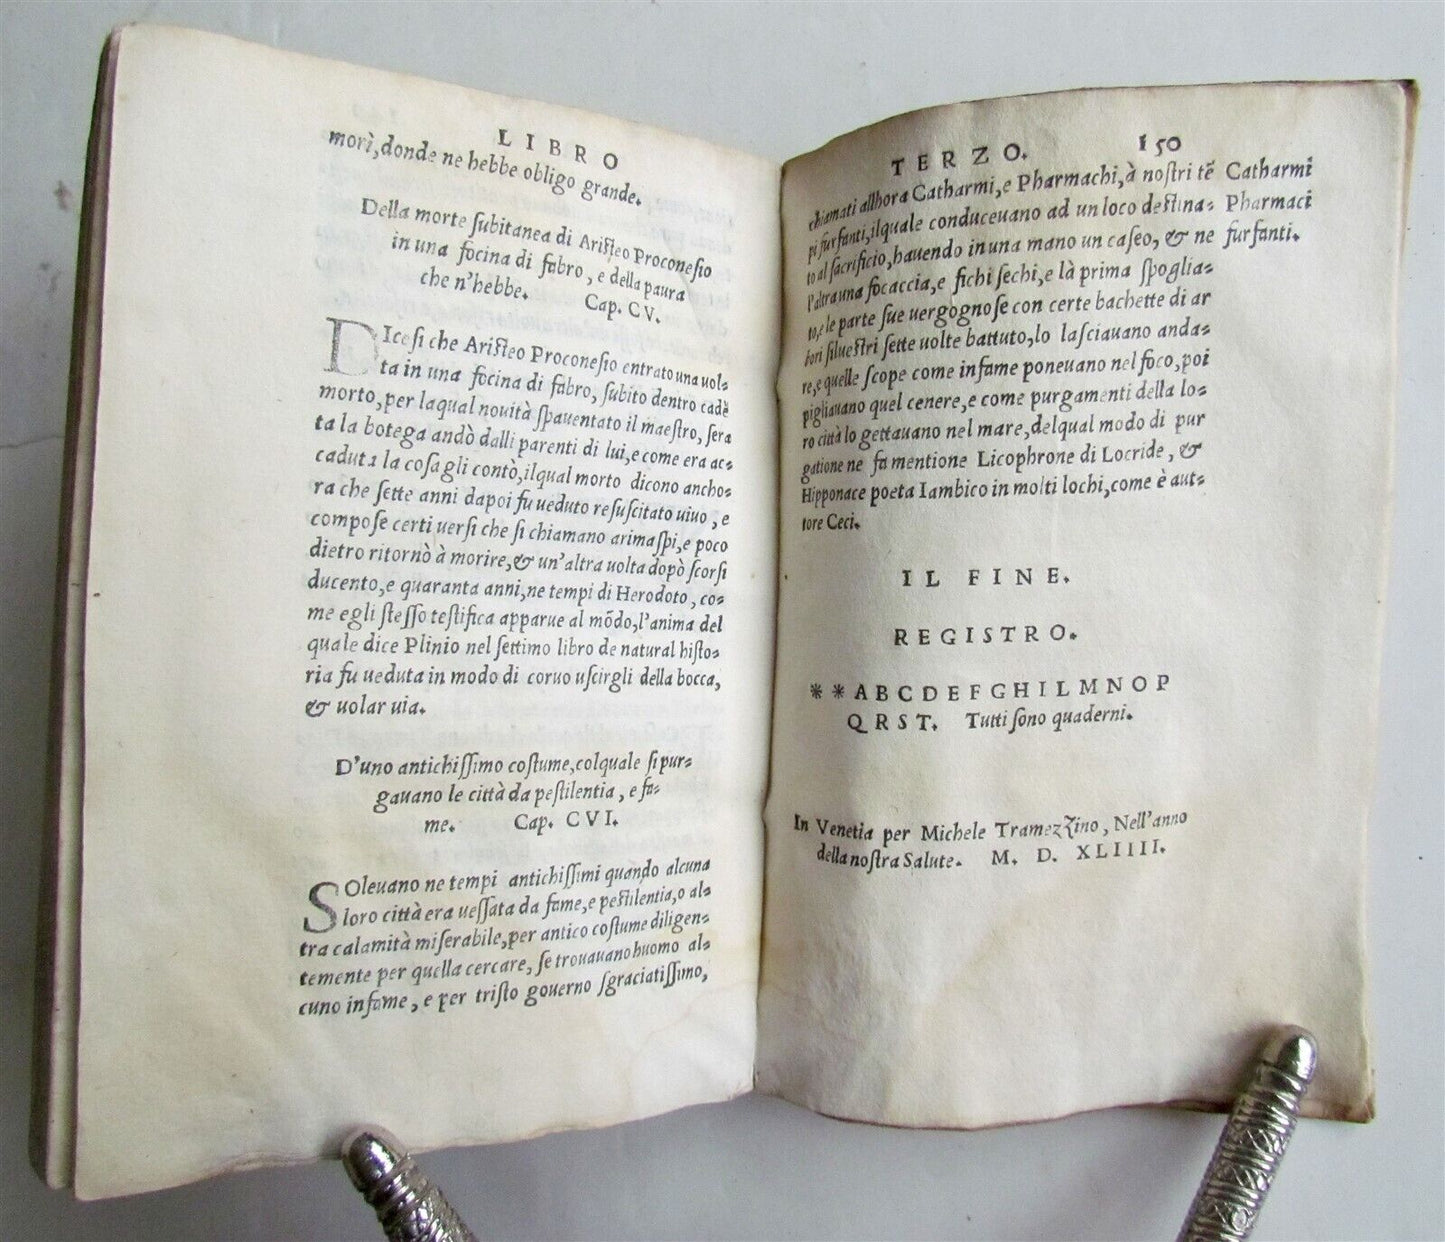 LIBRO
morì,donde ne hebbe obligo grande.
Della morte ſubitanea di Ariſteo Proconeſio
in una focina di fabro, e della paura
che n'hebbe. Cap. CV.
DIceſi che Ariſteo Proconeſio entrato una uol-
ta in una focina di fabro, ſubito dentro cadè
morto,per laqual nouità ſpauentato il maeſtro, ſera
ta la botega andò dalli parenti di lui,e come era ac-
caduta la coſa gli contò,ilqual morto dicono ancho-
ra che ſette anni dapoi fu ueduto reſuſcitato uiuo, e
compoſe certi uerſi che ſi chiamano arimaſpi,e poco
dietro ritornò à morire,& un'altra uolta dopò ſcorſi
ducento,e quaranta anni,ne tempi di Herodoto, co-
me egli ſteſſo teſtifica apparue al mōdo,l'anima del
quale dice Plinio nel ſettimo libro de natural hiſto-
ria fu ueduta in modo di coruo uſcirgli della bocca,
& uolar uia.
D'uno antichiſſimo coſtume,colquale ſi pur-
gauano le città da peſtilentia, e fa-
me. Cap. CVI.
SOleuano ne tempi antichiſſimi quando alcuna
loro città era ueſſata da fame,e peſtilentia,o al-
tra calamità miſerabile,per antico coſtume diligen-
temente per quella cercare, ſe trouauano huomo al-
cuno infame, e per triſto gouerno ſgraciatiſſimo,
TERZO. 150
chiamati allhora Catharmi,e Pharmachi,à noſtri tẽ
pi furfanti,ilquale conduceuano ad un loco deſtina-
to al ſacrificio,hauendo in una mano un caſeo, & ne
l'altra una focaccia,e fichi ſechi,e là prima ſpoglia-
to,e le parte ſue uergognoſe con certe bachette di ar
bori ſilueſtri ſette uolte battuto,lo laſciauano anda-
re,e quelle ſcope come infame poneuano nel foco,poi
pigliauano quel cenere,e come purgamenti della lo-
ro città lo gettauano nel mare,delqual modo di pur
gatione ne fa mentione Licophrone di Locride, &
Hipponace poeta Iambico in molti lochi,come è aut-
tore Ceci.
Catharmi
Pharmaci
furfanti.
IL FINE.
REGISTRO.
* * A B C D E F G H I L M N O P
Q R S T. Tutti ſono quaderni.
In Venetia per Michele Tramezzino, Nell'anno
della noſtra Salute. M. D. XLIIII.